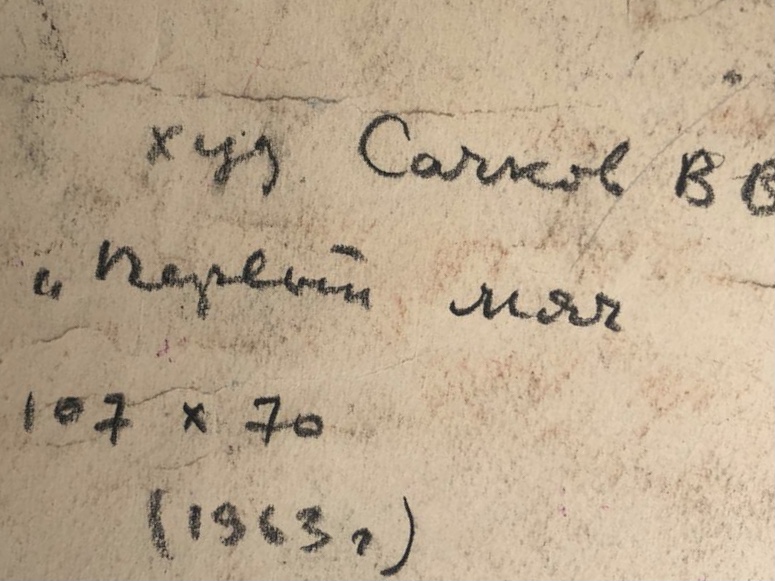 худ Сачков В В
„Первый мяч
107 x 70
(1963 г)